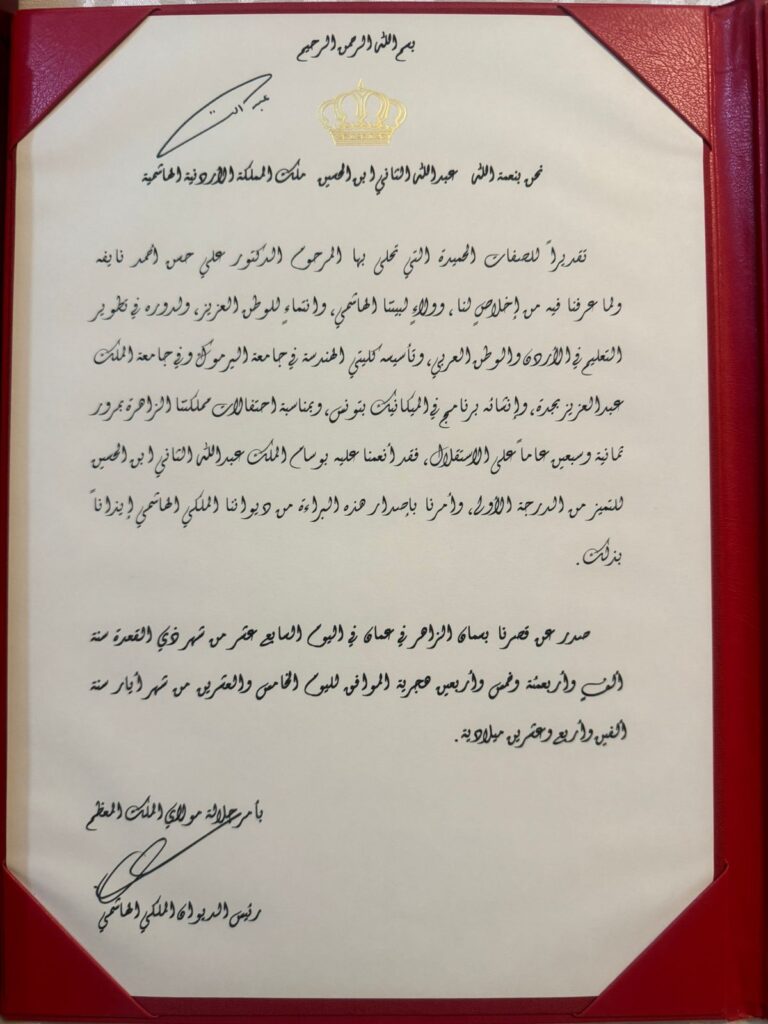 بسم الله الرحمن الرحيم
عبد الله
نحن بنعمة الله عبدالله الثاني ابن الحسين ملك المملكة الأردنية الهاشمية
تقديراً للصفات الحميدة التي تحلى بها المرحوم الدكتور علي حسن أحمد نايفه
ولما عرفنا فيه من إخلاصٍ لنا، وولاءٍ لبيتنا الهاشمي، وانتماءٍ للوطن العزيز، ولدوره في تطوير
التعليم في الأردن والوطن العربي، وتأسيسه كليتي الهندسة في جامعة اليرموك وفي جامعة الملك
عبدالعزيز بجدة، وإنشائه برنامج في الميكانيك بتونس، وبمناسبة احتفالات مملكتنا الزاهرة بمرور
ثمانية وسبعين عاماً على الاستقلال، فقد أنعمنا عليه بوسام الملك عبدالله الثاني ابن الحسين
للتميز من الدرجة الأولى، وأمرنا بإصدار هذه البراءة من ديواننا الملكي الهاشمي إيذاناً
بذلك.
صدر عن قصرنا بسمان الزاهر في عمان في اليوم السابع عشر من شهر ذي القعدة سنة
ألفٍ وأربعمئة وخمس وأربعين هجرية الموافق لليوم الخامس والعشرين من شهر أيار سنة
ألفين وأربع وعشرين ميلادية.
بأمر جلالة مولاي الملك المعظم
رئيس الديوان الملكي الهاشمي